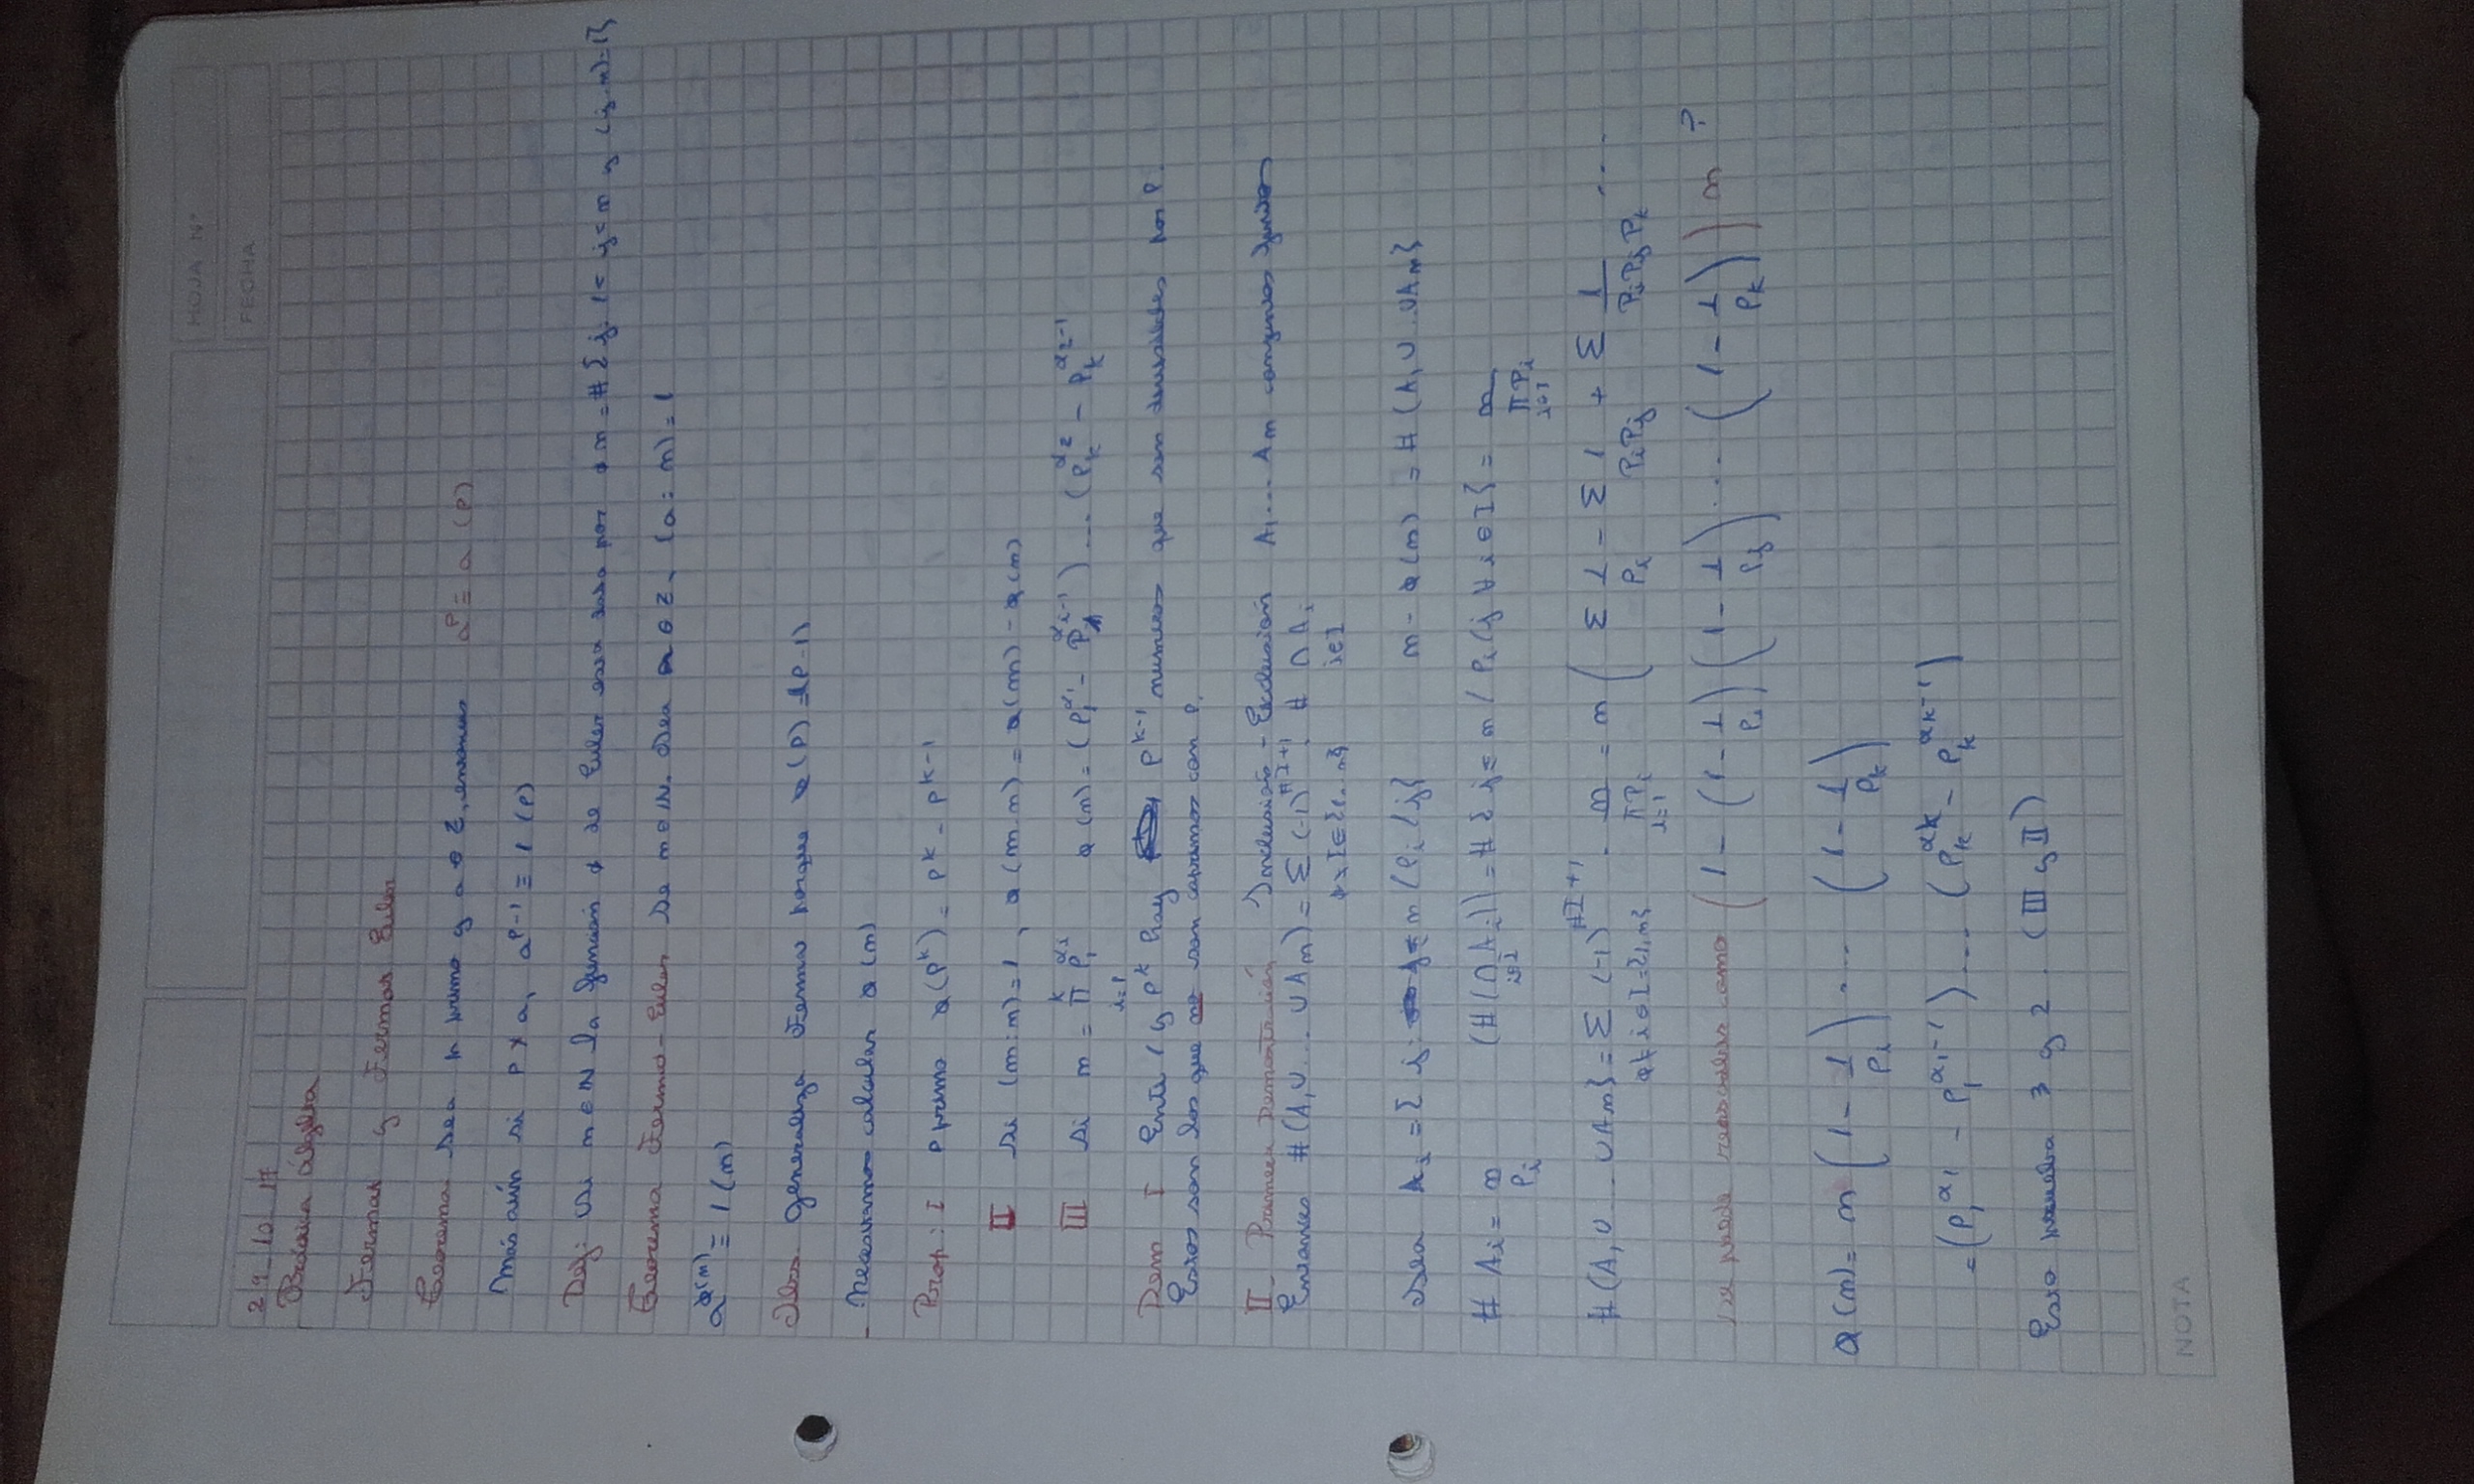 HOJA N°
FECHA
29_10_17
álgebra
Fermat y Fermat Euler
Teorema: Sea p primo y a ∈ Z, entonces a^p ≡ a (p)
Más aún si p ∤ a, a^{p-1} ≡ 1 (p)
Def: Si n ∈ N la función φ de Euler está dada por φ n = # { j: 1 ≤ j ≤ n y (j:n)=1}
Teorema Ferma-Euler Se n ∈ N. Sea a ∈ Z, (a : n) = 1
a^{φ(n)} ≡ 1 (n)
Obs. generaliza Ferma porque φ(p) = (p-1)
- Necesitamos calcular φ(n)
Prop: I p primo φ(p^k) = p^k - p^{k-1}
II Si (m:n)=1, φ(m.n) = φ(m) - φ(n)
III Si n = ∏_{i=1}^{k} p_i^{α_i} φ(n) = (p_1^{α_1} - p_1^{α_i-1}) ... (p_k^{α_2} - p_k^{α_2-1}
Dem I Ente 1 y p^k hay p^{k-1} numeros que son divisibles por p.
Estos son los que no son coprimos con p.
II_ Primera Demostración Inclusión - Exclusión A_1 ... A_m conjuntos finitos
Entonces # (A_1 ∪ ... ∪ A_m) = Σ (-1)^{#I+1} . # ∩ A_i
∅ ≠ I ∈ {1...n} i∈I
Sea A_i = { j: j ≤ n / p_i / j} n - φ(n) = # (A_1 ∪ .. ∪ A_m}
# A_i = n/p_i (# (∩_{i∈I} A_i)) = # { j ≤ n / p_i / j ∀ i ∈ I } = n/∏_{i∈I} p_i
# (A_1 ∪ ... ∪ A_m} = Σ (-1)^{#I+1} . n/∏_{i=1} p_i = n ( Σ 1/p_i - Σ 1/p_i p_j + Σ 1/p_i p_j p_k ....
∅ ≠ i ∈ I = {1, n}
Se puede reescribir como (1 - (1 - 1/p_i) (1 - 1/p_j) ... (1 - 1/p_k)) n ?
φ(n) = n (1 - 1/p_i) .... (1 - 1/p_k)
= (p_1^{α_1} - p_1^{α_1-1}) ... (p_k^{α_k} - p_k^{α_k-1})
Esto prueba 3 y 2. (III y II)
NOTA